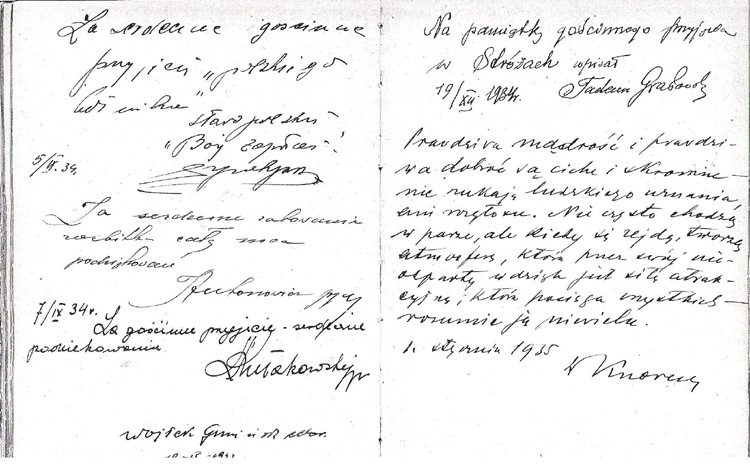 Za serdeczne gościnne
przyjęcie „polskiego
staropolskie
„Bóg zapłać!
5/IX. 34.
Za serdeczne
rozbitka całą moc
podziękowań
7/IX 34r.
Za gościnne przyjęcie - serdeczne
podziękowanie
Wojtek
Na pamiątkę gościnnego przyjęcia
w Stróżach wpisał
19/XII. 1934r. Tadeusz Grabowski
Prawdziwa mądrość i prawdzi-
wa dobroć są ciche i skromne –
nie szukają ludzkiego uznania,
ani rozgłosu. Nie często chodzą
w parze, ale kiedy się zejdą, tworzą
atmosferę, która przez swój nie-
odparty wdzięk jest siłą atrak-
cyjną, która pociąga wszystkich –
rozumie ją niewielu.
1. stycznia 1935